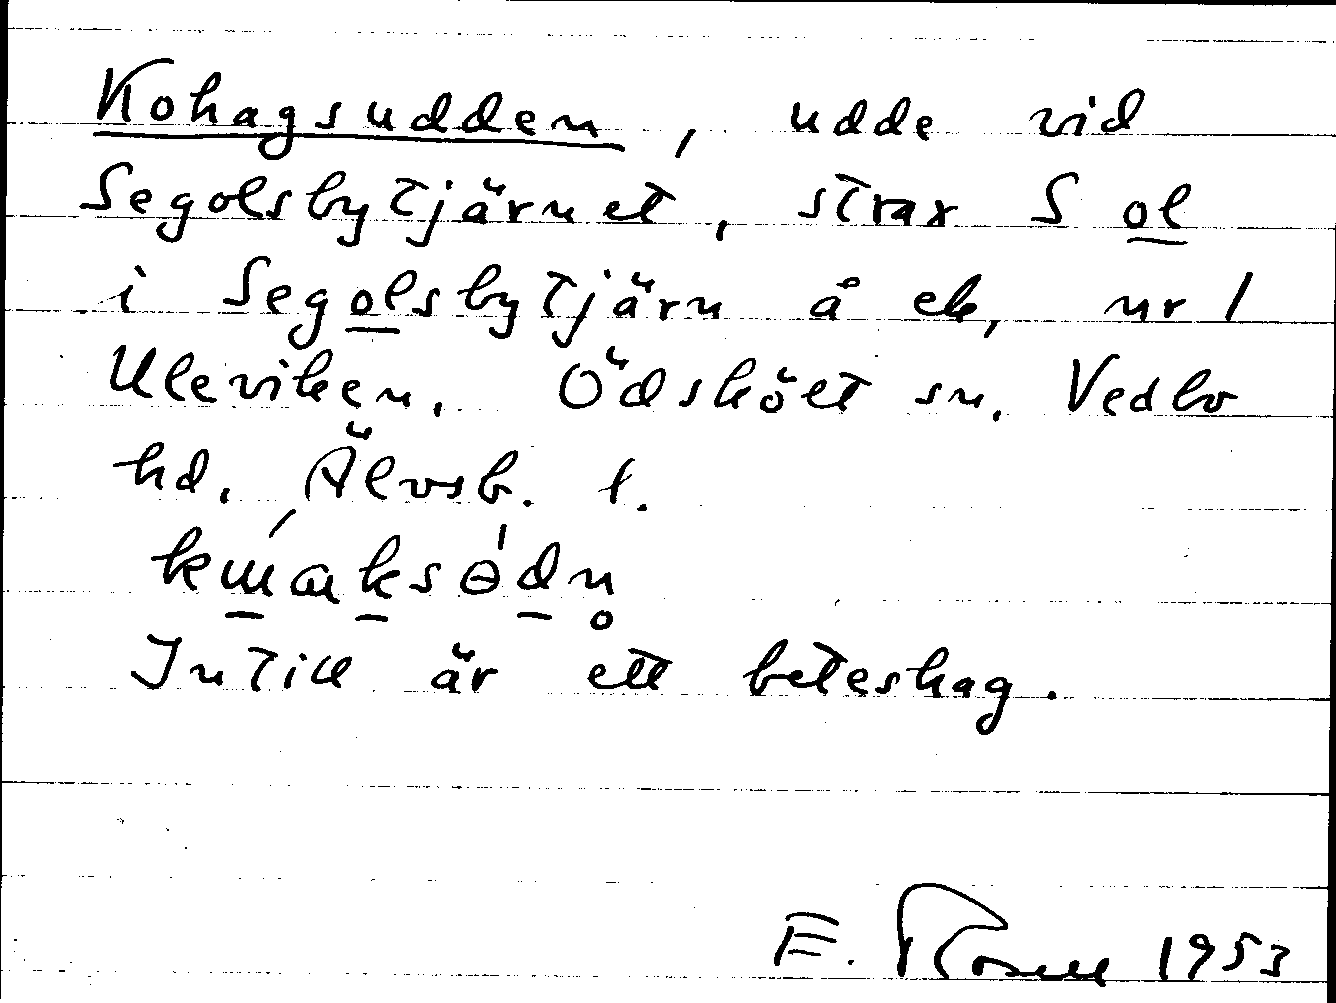 Kohagsudden, udde vid
Segolsbytjärnet, strax S ol
i Segolsbytjärn å ek, nr 1
Uleviken. Ödskölt sn. Vedbo
hd. Älvsb. l.
Intill är ett beteshag.
E. 1953